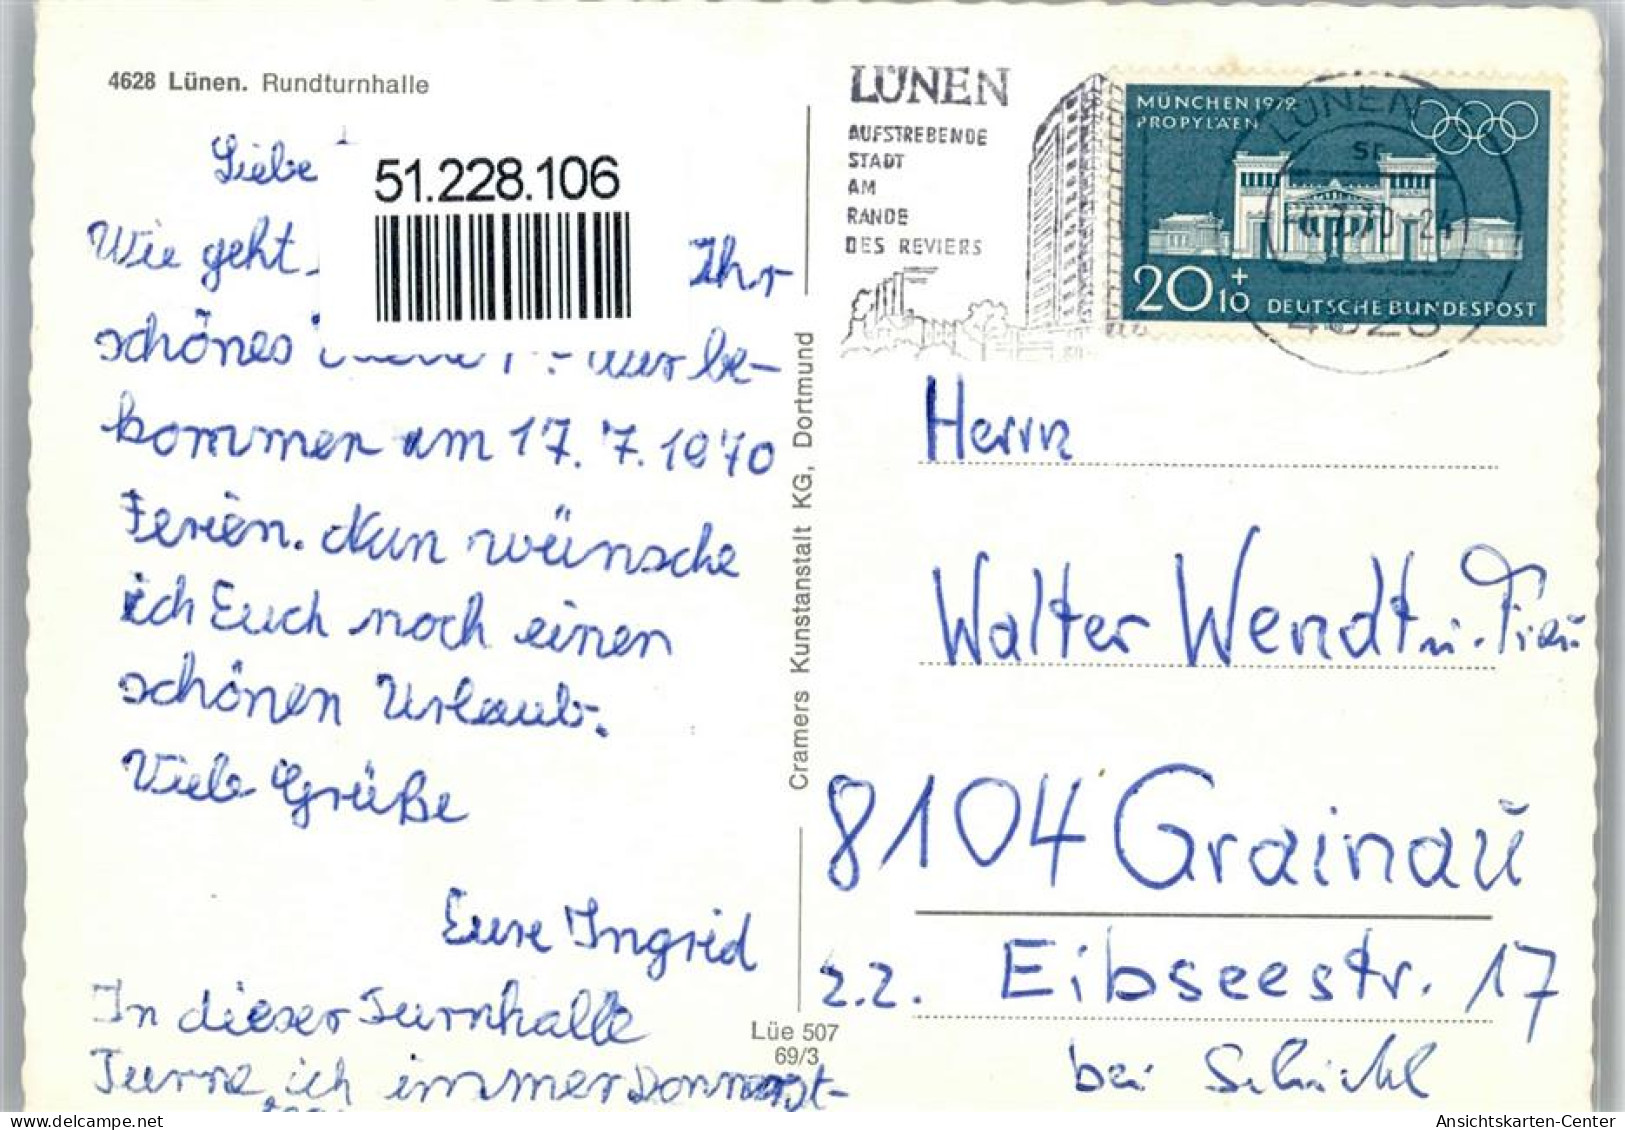 4628 Lünen. Rundturnhalle
Liebe
51.228.106
Wie geht Ihr
schönes wir be-
kommen am 17. 7. 1970
Ferien. Nun wünsche
ich Euch noch einen
schönen Urlaub.
Viele Grüße
Eure Ingrid
In dieser Turnhalle
Turne ich immer Donnerst-
Cramers Kunstanstalt KG, Dortmund
Lüe 507
69/3
LÜNEN
AUFSTREBENDE
STADT
AM
RANDE
DES REVIERS
MÜNCHEN 1972
PROPYLÄEN
20+10 DEUTSCHE BUNDESPOST
LÜNEN
4628
Herrn
Walter Wendt u. Frau
8104 Grainau
z.Z. Eibseestr. 17
bei
Ansichtskarten-Center